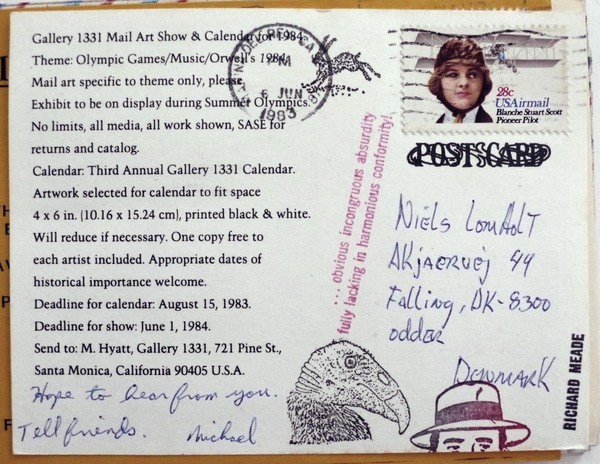 Gallery 1331 Mail Art Show & Calendar for 1984
Theme: Olympic Games/Music/Orwell's 1984.
Mail art specific to theme only, please.
Exhibit to be on display during Summer Olympics.
No limits, all media, all work shown, SASE for
returns and catalog.
Calendar: Third Annual Gallery 1331 Calendar.
Artwork selected for calendar to fit space
4 x 6 in. (10.16 x 15.24 cm), printed black & white.
Will reduce if necessary. One copy free to
each artist included. Appropriate dates of
historical importance welcome.
Deadline for calendar: August 15, 1983.
Deadline for show: June 1, 1984.
Send to: M. Hyatt, Gallery 1331, 721 Pine St.,
Santa Monica, California 90405 U.S.A.
Hope to hear from you.
Tell friends. Michael
MARINA DEL REY, CA
PM
6 JUN
1983
28c
USAirmail
Blanche Stuart Scott
Pioneer Pilot
POSTCARD
... obvious incongruous absurdity
fully lacking in harmonious conformity!
Niels Lomholt
Akjaervej 49
Falling, DK-8300
odder
Denmark
RICHARD MEADE